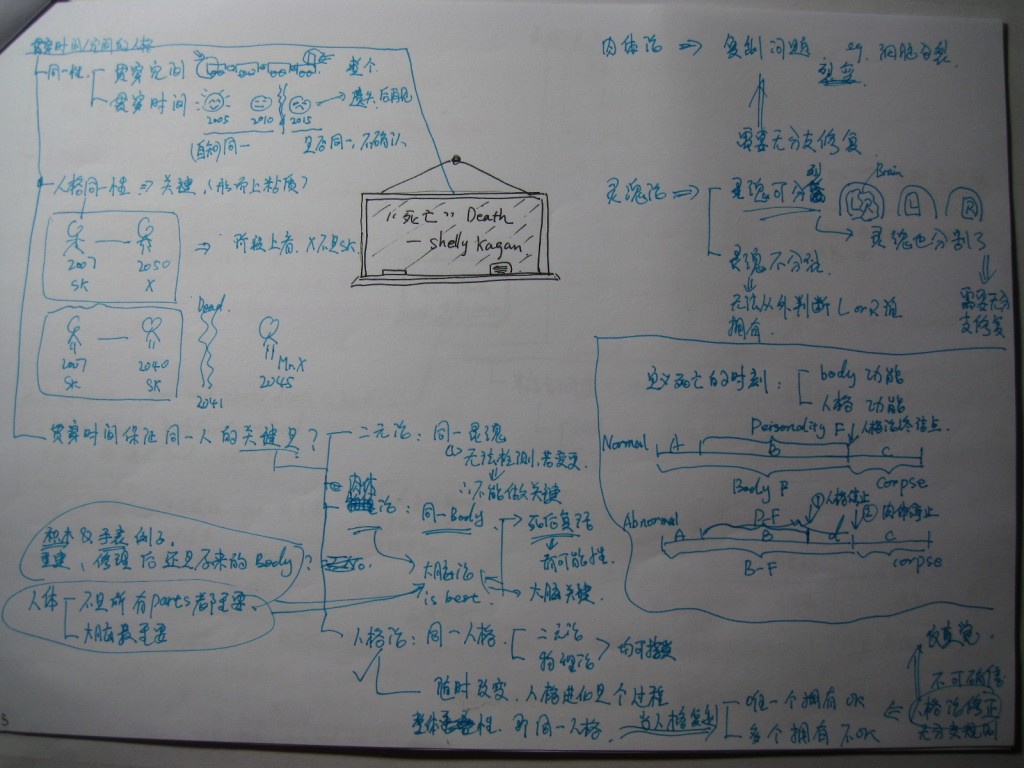 贯穿时间/空间的人格
同一性
贯穿空间
整个
贯穿时间
2005 2010 2015
→ 遗失后再见
(自知)同一
是否同一,不确认
人格同一性 ⇒ 关键,(形而上粘质)
2007 2050
SK X
⇒ 阶段上看,X不是SK
Dead
2007 2040
SK SK
2041
Mr.X
2045
"死亡" Death
— Shelly Kagan
贯穿时间保证同一人的关键是?
二元论:同一灵魂
无法检测,若变更
∴不能做关键
肉体
论:同一Body
死后复活
新可能性.
大脑论
is best.
大脑关键.
积木&手表例子.
重建、修理后还是原来的Body?
人体
不是所有parts都重要、
大脑最重要
人格论:同一人格.
二元论
物理论
均可接受
随时改变,人格进化是个过程
整体性,即同一人格.
当人格复制
唯一个拥有 OK
多个拥有 不OK
⇐ 人格论修正
无分支规则
不可确信
反直觉.
肉体论 ⇒ 复制问题 eg. 细胞分裂
需要无分支修复
灵魂论 ⇒
灵魂可分裂
Brain
L R L R
→ 灵魂也分割了
需要无分支修复
灵魂不分裂.
无法从外判断 L or R 谁
拥有.
定义死亡的时刻:
body 功能
人格 功能
Personality F
人格论终结点.
Normal A B C
Body F corpse
①人格停止
P-F ②肉体停止
Abnormal A B d C
B-F corpse